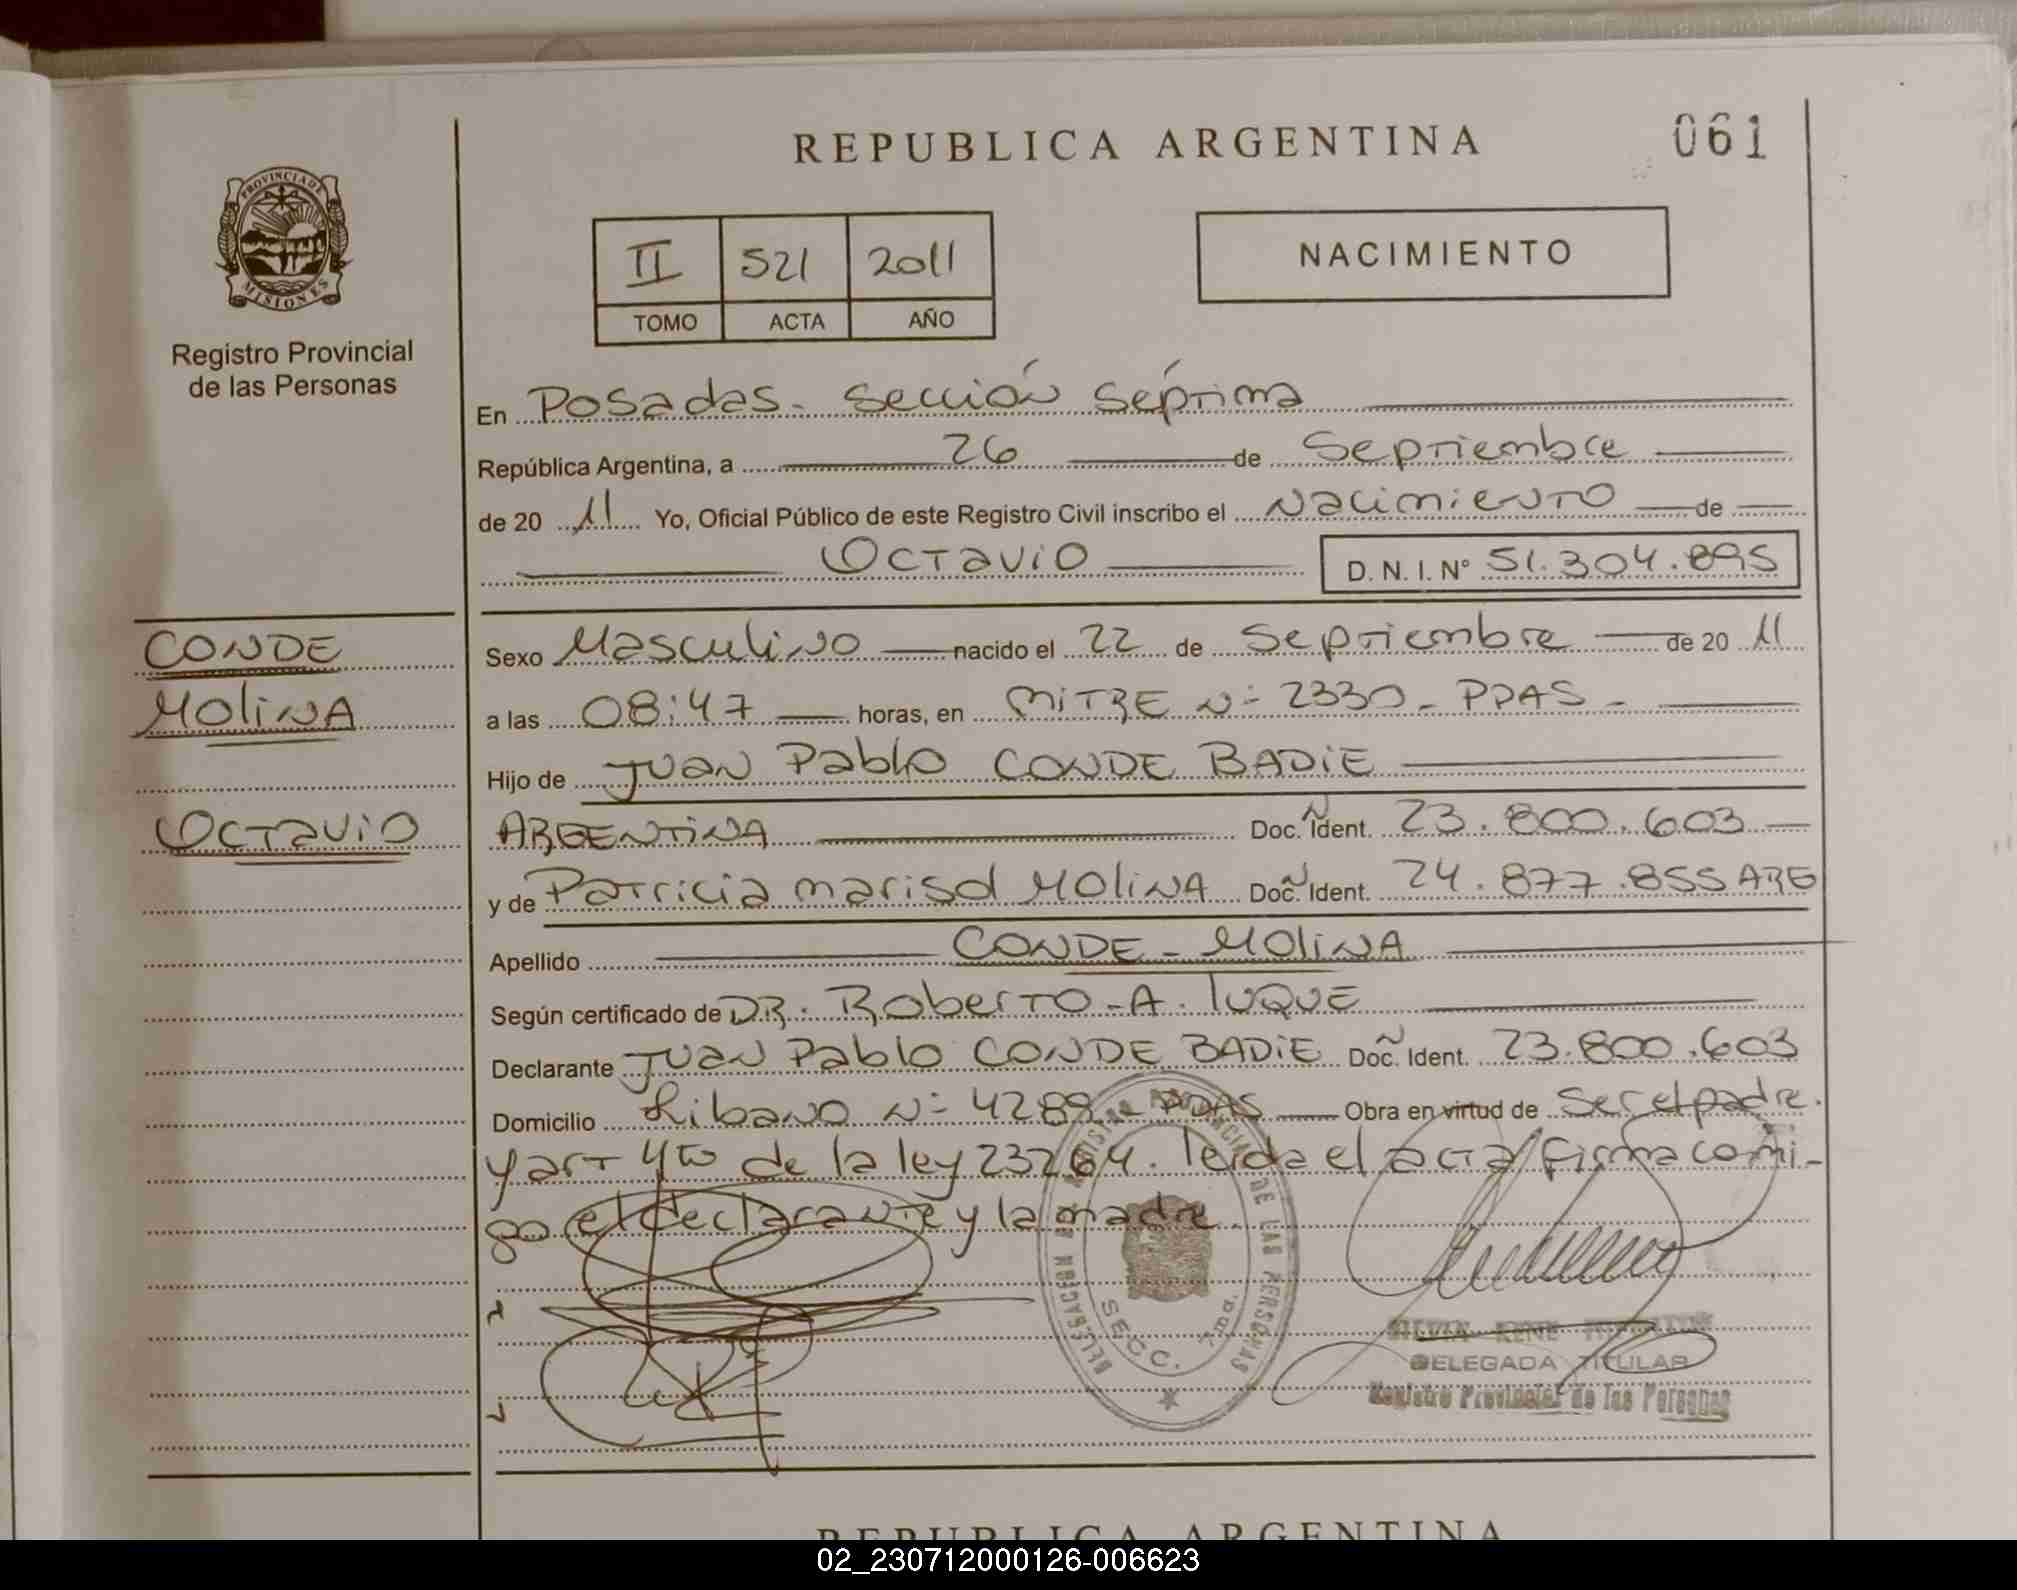 REPUBLICA ARGENTINA
061
PROVINCIA DE
MISIONES
Registro Provincial
de las Personas
II 521 2011
TOMO ACTA AÑO
NACIMIENTO
En Posadas - Sección Séptima
República Argentina, a 26 de Septiembre
de 20 11 Yo, Oficial Público de este Registro Civil inscribo el Nacimiento de
Octavio D. N. I. N° 51.304.895
CONDE
MOLINA
Octavio
Sexo Masculino nacido el 22 de Septiembre de 20 11
a las 08:47 horas, en MITRE N° 2330 - PDAS -
Hijo de Juan Pablo CONDE BADIE
ARGENTINA Doc. Ident. 23.800.603
y de Patricia Marisol MOLINA Doc. Ident. 24.877.855 ARG
Apellido CONDE - MOLINA
Según certificado de DR. Roberto - A. LUQUE
Declarante Juan Pablo CONDE BADIE Doc. Ident. 23.800.603
Domicilio Libano N° 4289 - PDAS Obra en virtud de Ser el padre.
y art 4to de la ley 23264. leida el acta firma conmi-
go el declarante y la madre
DELEGACION PROVINCIAL DE LAS PERSONAS
SECC. 7ma.
DELEGADA TITULAR
Registro Provincial de las Personas
REPUBLICA ARGENTINA
02_230712000126-006623